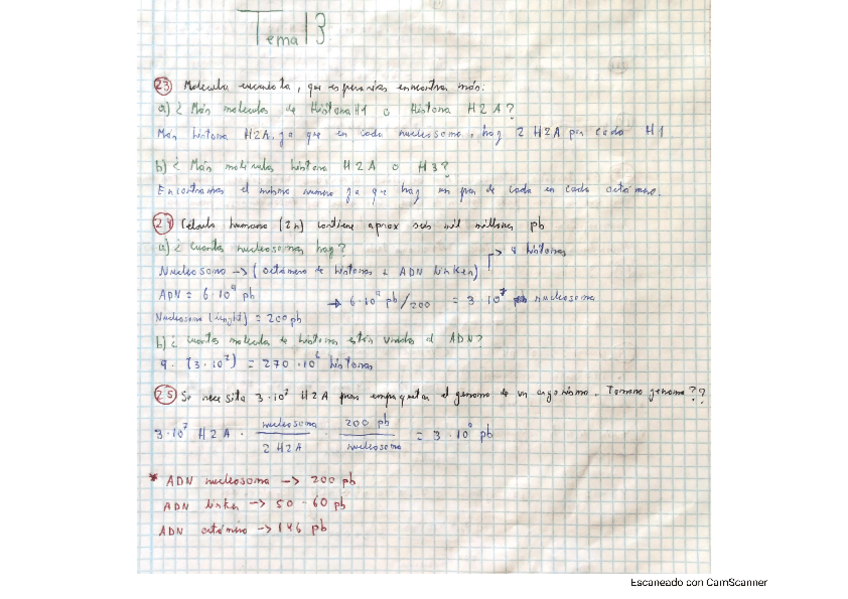 Tema 13
23 Molecula eucariota, que esperarias encontrar más:
a) ¿Más moleculas de Histona H1 o Histona H2A?
Más histona H2A, ya que en cada nucleosoma, hay 2 H2A por cada H1
b) ¿Más moléculas histona H2A o H3?
Encontramos el mismo numero ya que hay un par de cada en cada octámero.
24 Célula humana (2n) contiene aprox seis mil millones pb
a) ¿Cuantos nucleosomas hay?
Nucleosoma -> (octámero de histonas + ADN linker) -> 9 histonas
ADN = 6·10⁹ pb -> 6·10⁹ pb/200 = 3·10⁷ nucleosoma
Nucleosoma (lenght) = 200 pb
b) ¿Cuantas molecula de histonas están unidas al ADN?
9 · (3·10⁷) = 270·10⁶ histonas
25 Se necesita 3·10⁷ H2A para empaquetar el genoma de un organismo. Tamano genoma??
3·10⁷ H2A · nucleosoma / 2 H2A · 200 pb / nucleosoma = 3·10⁹ pb
* ADN nucleosoma -> 200 pb
ADN linker -> 50-60 pb
ADN octámero -> 146 pb
Escaneado con CamScanner